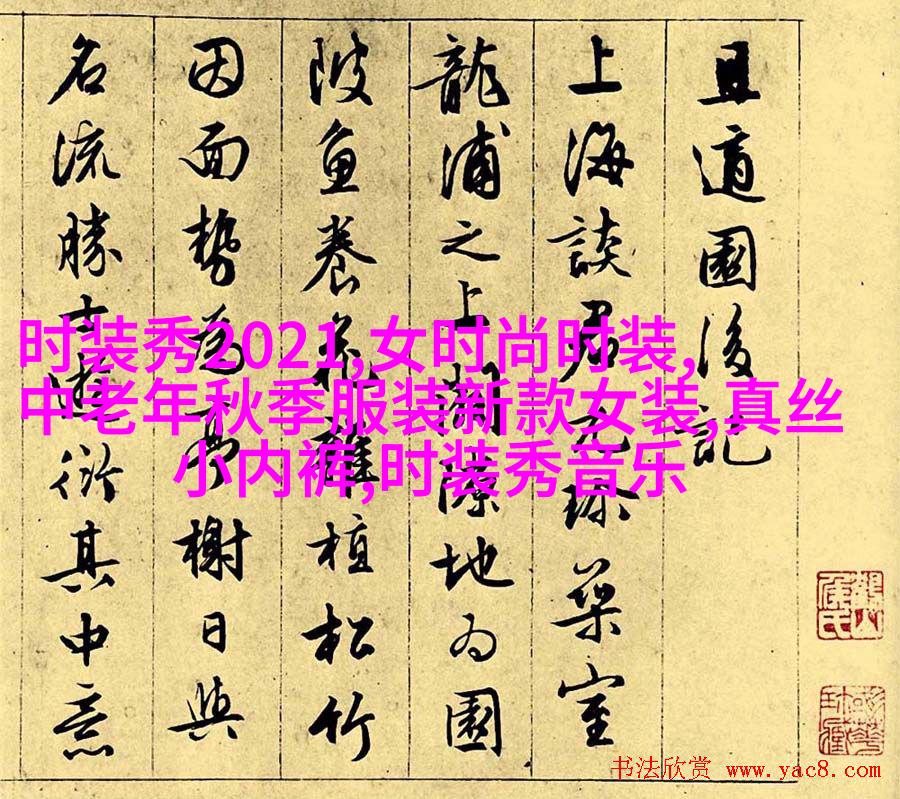 且適園後記
上海談君元珍築室
龍浦之上闢隙地為園
陂魚養花雜植松竹
因面勢為亭榭日與
名流勝士遊衍其中意
时装秀2021,女时尚时装,
中老年秋季服装新款女装,真丝
小内裤,时装秀音乐
书法欣赏 www.yac8.com